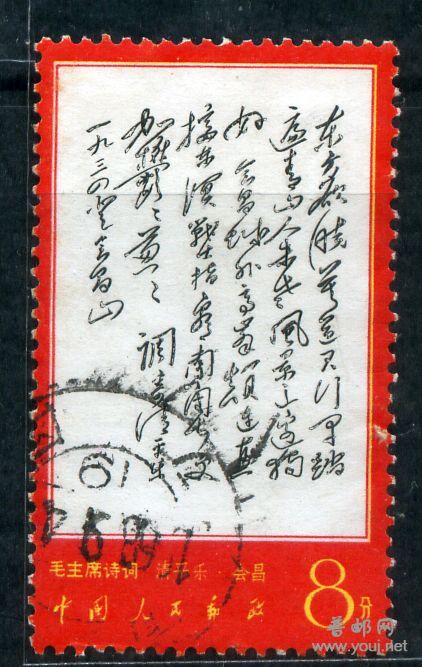 东方欲晓莫道君行早踏
遍青山人未老风景这边独
好 会昌城外高峰颠连直
接东溟战士指看南粤更
加郁〻葱〻 调寄清平乐
一九三四 登会昌山
毛主席诗词 清平乐·会昌
中国人民邮政
8分
普邮网
www.youj.net